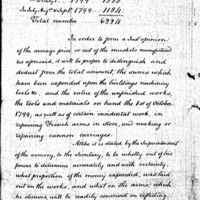 1799.
In July Augt & Septr 1799. 1184.
Total number 6394
In order to form a just opinion
of the average price or cost of the muskets manufactured
as aforesaid, it will be proper to distinguish and
deduct from the total amount, the sums which
have been expended upon the buildings, machinery
tools &c. and the value of the unfinished works,
the tools and materials on hand the 1st of October
1799, as well as of certain incidental work, in
repairing French arms in store, and making or
repairing cannon carriages.
Altho it is stated by the Superintendent
of the armory, to the Secretary, to be wholly out of his
power to determine accurately, and with certainty,
what proportion of the money expended, was laid
out on the works, and what on the arms; which
he observes, will be readily conceived on reflecting,